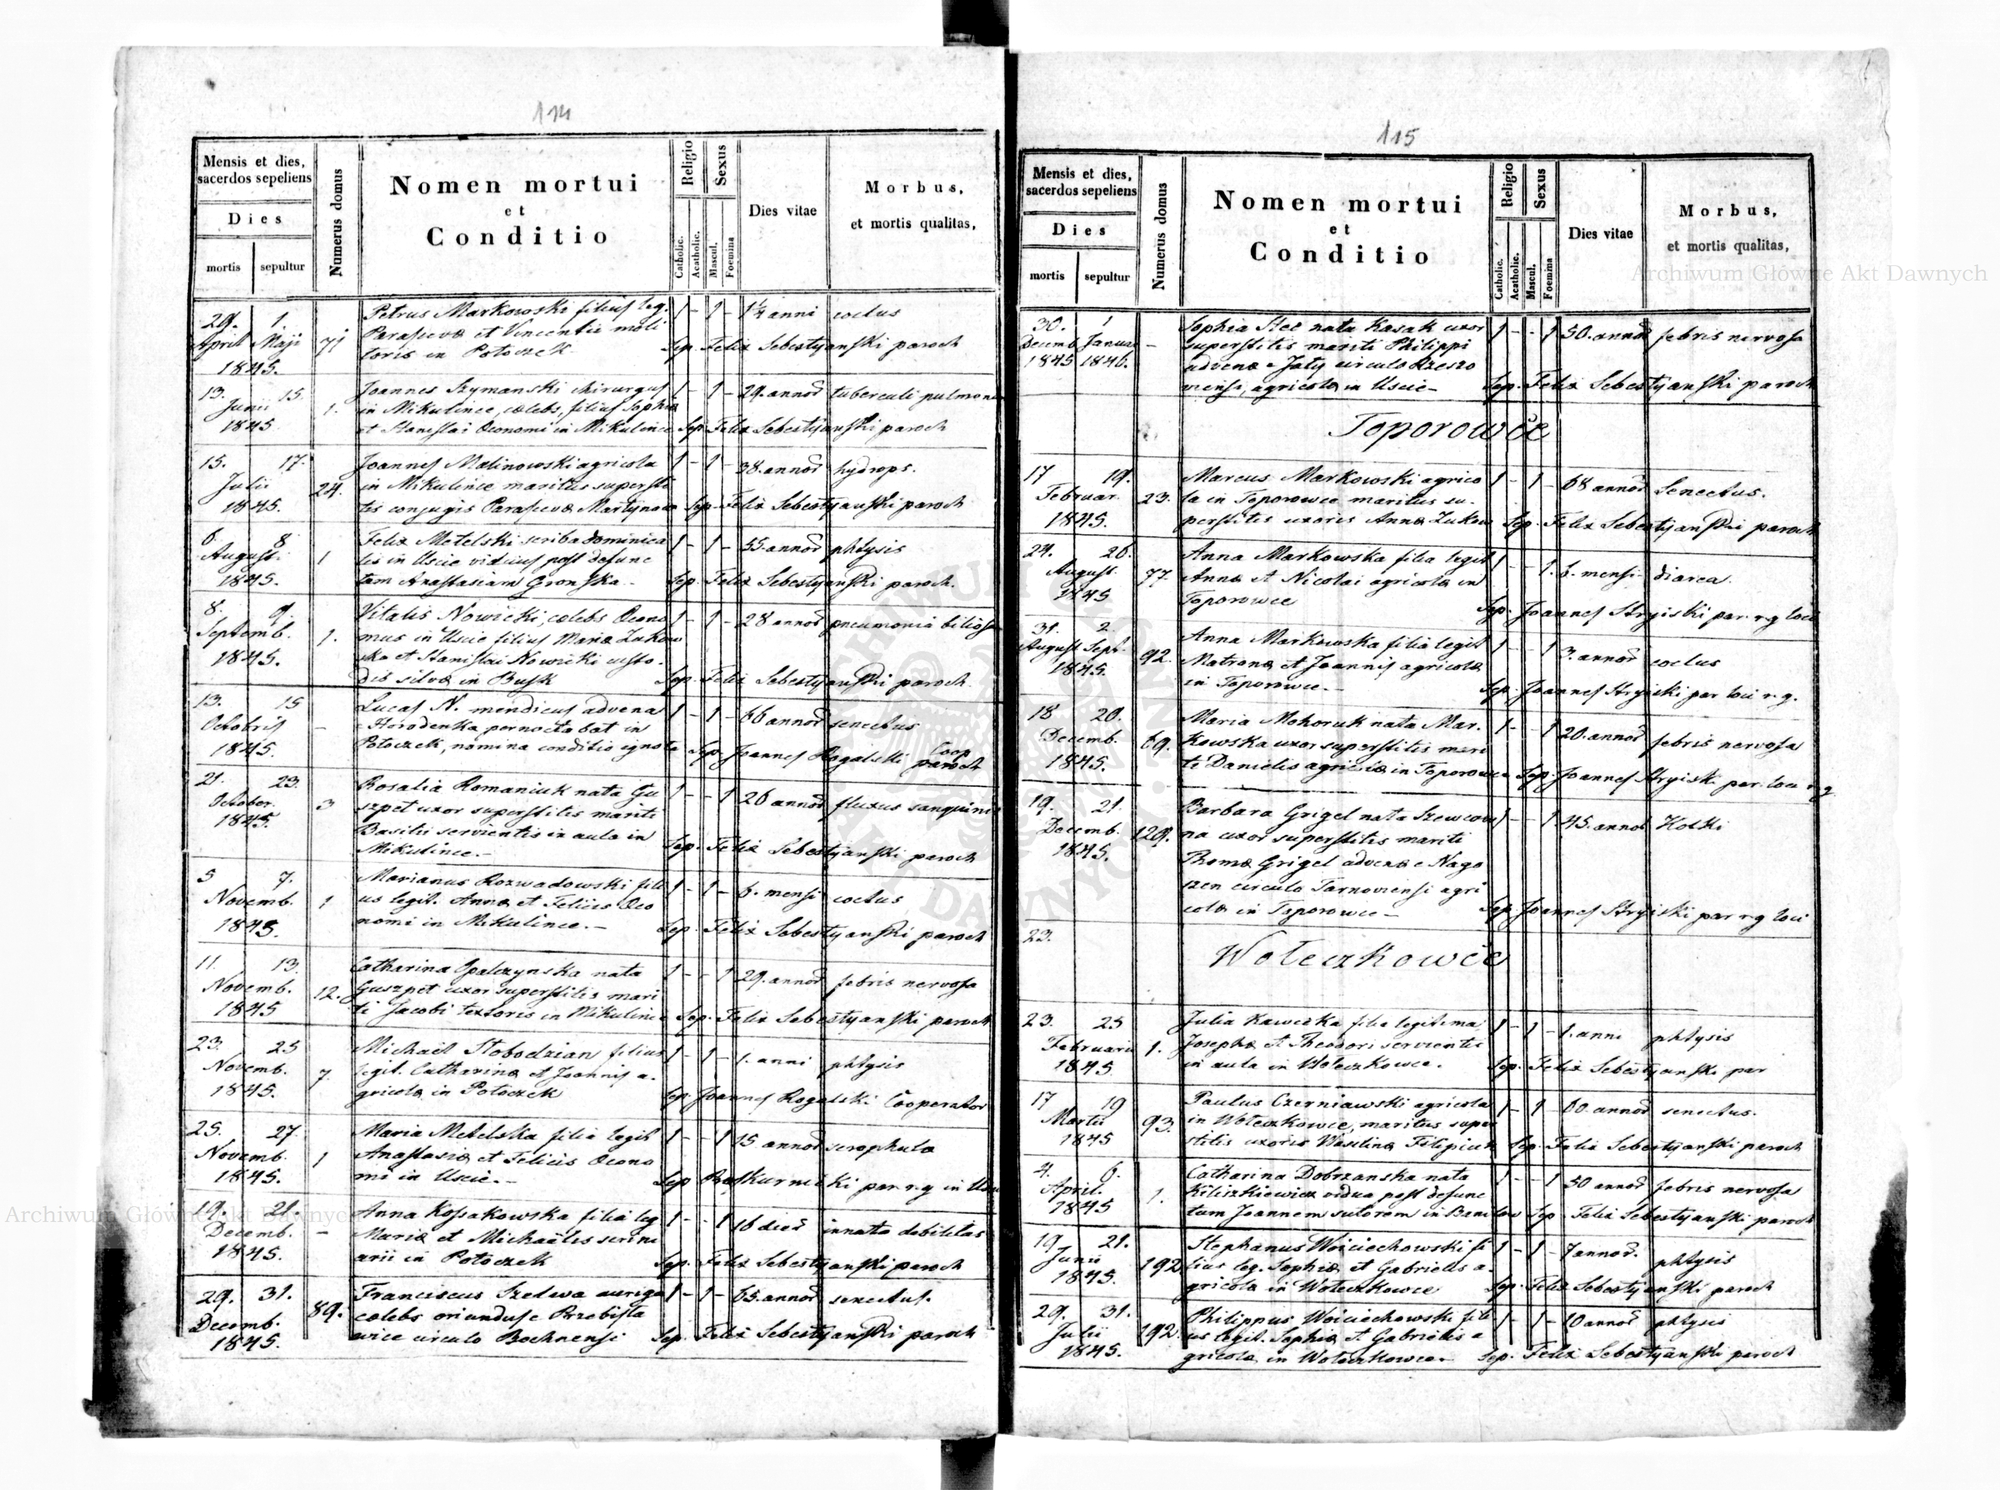 114
Mensis et dies,
sacerdos sepeliens
Dies
mortis
sepultur
Numerus domus
Nomen mortui
et
Conditio
Religio
Catholic.
Acatholic.
Sexus
Mascul.
Foemina
Dies vitae
Morbus,
et mortis qualitas,
29. 1. Petrus Markowski filius leg. 1 - 1 - 1¼ anni coctus
April Maji 71 Parascevæ et Vincentii moli
toris in Potoczek Sep. Felix Sebestyanski paroch
1845.
13. 15 Joannes Szymanski chirurgus 1 - 1 - 29. annor tuberculi pulmon
Junii 1. in Mikulince, cælebs, filius Sophiæ
1845 et Stanislai Oeconomi in Mikulince Sep. Felix Sebestyanski paroch
15. 17. Joannes Malinowski agricola 1 - 1 - 38. annor hydrops.
Julii 24. in Mikulince maritus supersti
1845. tis conjugis Parascevæ Martynow Sep. Felix Sebestyanski paroch
6. 8 Felix Metelski scriba dominica 1 - 1 - 55. annor phtysis
August. 1 lis in Uscie viduus post defunc
1845. tam Anastasiam Gronska. Sep. Felix Sebestyanski paroch.
8. 9. Vitalis Nowicki, cælebs Oeco 1 - 1 - 28 annor pneumonia biliosa
Septemb. 1. mus in Uscie filius Mariæ Zukow
1845. ska et Stanislai Nowicki custo.
dis silvæ in Busk Sep. Felix Sebestyanski paroch.
13. 15 Lucas N. mendicus advena 1 - 1 - 66 annor senectus
Octobris - e Horodenka pernoctabat in
Coop
1845. Potoczek, nomina conditio ignota Sep. Joannes Rogalski paroch
21. 23. Rosalia Romaniuk nata Gu 1 - - 1 26 annor fluxus sanguinis
October. 3 szpet uxor superstitis mariti
1845. Basilii servientis in aula in
Mikulince. - Sep. Felix Sebestyanski paroch
5 7. Marianus Rozwadowski fili 1 - 1 - 6. mensi coctus
Novemb. 1 us legit. Annæ et Felicis Oeco
1845. nomi in Mikulince. - Sep. Felix Sebestyanski paroch
11. 13. Catharina Opalczynska nata 1 - - 1 29. annor febris nervosa
Novemb. 12. Guszpet uxor superstitis mari
1845 ti Jacobi textoris in Mikulince Sep. Felix Sebestyanski paroch
23. 25 Michael Slobodzian filius 1 - 1 - 1. anni phtysis
Novemb. 7. legit. Catharinæ et Joannis a.
1845. gricolæ in Potoczek Sep. Joannes Rogalski Cooperator
25. 27. Maria Metelska filia legit 1 - - 1 15 annor scrophula
Novemb. 1 Anastasiæ et Felicis Oecono
1845. mi in Uscie. - Sep par. r. g in
19. 21. Anna Kossakowska filia leg 1 - - 1 16 dier innata debilitas
Decemb. - Mariæ et Michaelis
1845. arii in Potoczek Sep. Felix Sebestyanski paroch
29. 31. Franciscus Szelwa auriga 1 - 1 - 65. annor senectus.
Decemb. 89. cælebs oriundus e
1845. wice circulo Bochnensi Sep. Felix Sebestyanski paroch
115
Mensis et dies,
sacerdos sepeliens
Dies
mortis
sepultur
Numerus domus
Nomen mortui
et
Conditio
Religio
Catholic.
Acatholic.
Sexus
Mascul.
Foemina
Dies vitae
Morbus,
et mortis qualitas,
30. 1 Sophia Stec nata Kasak uxor 1 - - 1 50. annor febris nervosa
Decemb Januar - superstitis mariti Philippi
1845 1846. advenæ e circulo Rzeszo
viensi, agricolæ in Uscie - Sep. Felix Sebestyanski paroch
Toporowce
17 19. Marcus Markowski agrico 1 - 1 - 68 annor Senectus.
Februar. 23. la in Toporowce maritus su.
1845. perstitis uxoris Annæ Zukow Sep. Felix Sebestyanski paroch
24. 26. Anna Markowska filia legit 1 - - 1. 6. mensi diarea.
August. 77. Annæ et Nicolai agricolæ in
1845 Toporowce Sep. Joannes Stryiski par. r. g loci
31. 2. Anna Markowska filia legit 1 - - 1 3. annor coctus
August Sept. 92. Matronæ et Joannis agricolæ
1845. in Toporowce. - Sep. Joannes Stryiski par loci r. g.
18 20. Maria Mohoruk nata Mar. 1 - - 1 20. annor febris nervosa
Decemb. 69. kowska uxor superstitis mari
1845. ti Danielis agricolæ in Toporowce Sep. Joannes Stryiski par. loci r g
19. 21. Barbara Grigel nata Szewcow 1 - - 1 45. annor Kolki
Decemb. 129. na uxor superstitis mariti
1845. Thomæ Grigel advenæ e Nago
szen circulo Tarnoviensi agri
colæ in Toporowce - Sep. Joannes Stryiski par r g loci
23.
Woleczkowce
23. 25 Julia Kawecka filia legitima 1 - 1 - 1. anni phtysis
Februarii 1. Josephæ et Theodori servientis
1845 in aula in Woleczkowce. Sep. Felix Sebestyanski par
17 19 Paulus Czerniawski agricola 1 - 1 - 60. annor senectus.
Martii 93. in Woleczkowce, maritus super
1845 stitis uxoris Wasilinæ Filipiuk Sep. Felix Sebestyanski paroch
4. 6. Catharina Dobrzanska nata 1 - - 1 50 annor febris nervosa
April. 1. Kiliszkiewicz vidua post defunc
1845 tum Joannem sutorem in Sep. Felix Sebestyanski paroch
19 21. Stephanus Woiciechowski fi 1 - 1 - 7 annor. phtysis
Junii 192 lius leg. Sophiæ et Gabrielis a.
1845. gricolæ in Woleczkowce Sep. Felix Sebestyanski paroch
29. 31. Philippus Woiciechowski fili 1 - 1 - 10 annor phtysis
Julii 192. us legit. Sophiæ et Gabrielis a
1845. gricolæ in Woleczkowce. Sep. Felix Sebestyanski paroch
Archiwum Główne Akt Dawnych
Archiwum Główne Akt Dawnych